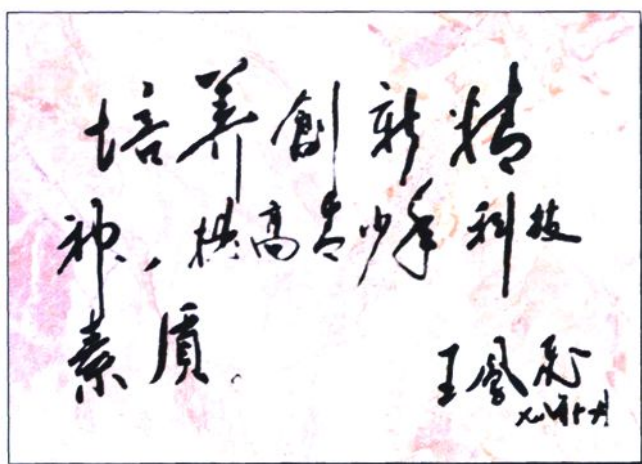 培养創新精
神，提高青少年科技
素质。
王鳳飛
九八年十月